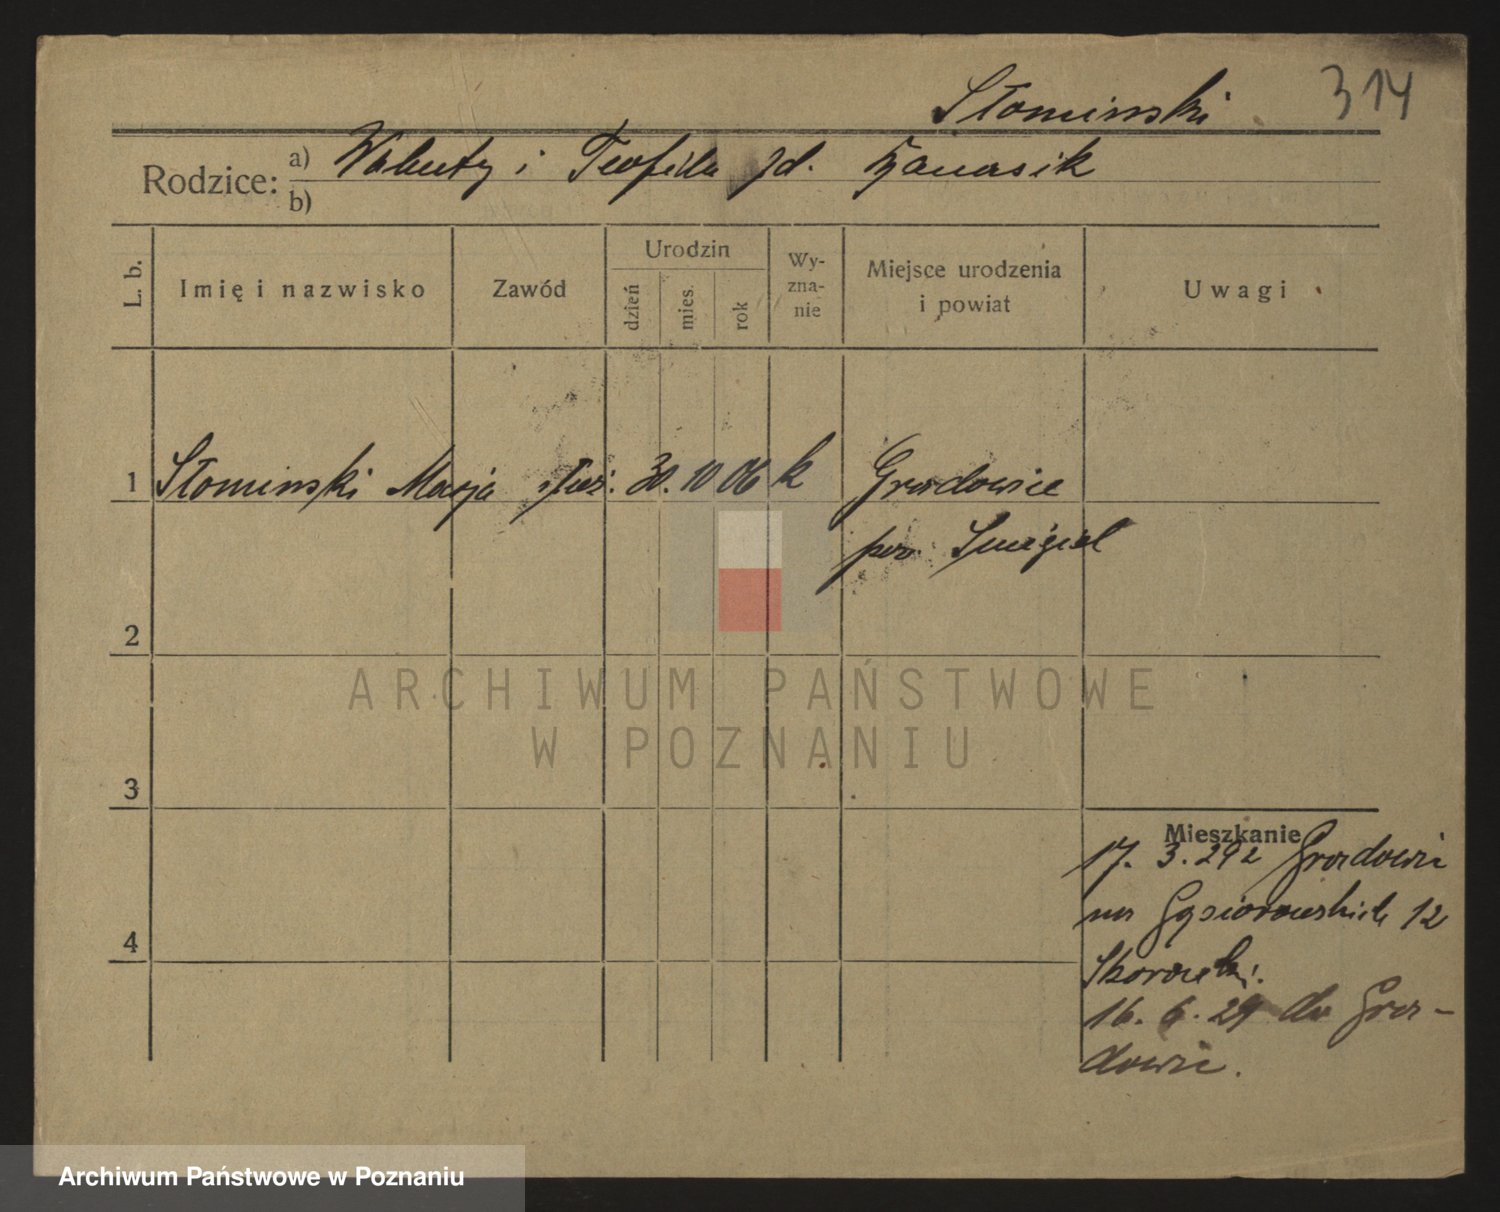 Słominski 314
Rodzice: a) Walenty i Teofila zd.
b)
L. b.
Imię i nazwisko
Zawód
Urodzin
dzień
mies.
rok
Wy-
zna-
nie
Miejsce urodzenia
i powiat
Uwagi
1 Słominski Marja służ. 30. 10 06 k Gradowice
pow. Smigiel
2
3
4
Mieszkanie
17. 3. 29 z Gradowic
na Gąsiorowskich 12
16. 6. 29 do Gra-
dowic.
ARCHIWUM PAŃSTWOWE
W POZNANIU
Archiwum Państwowe w Poznaniu